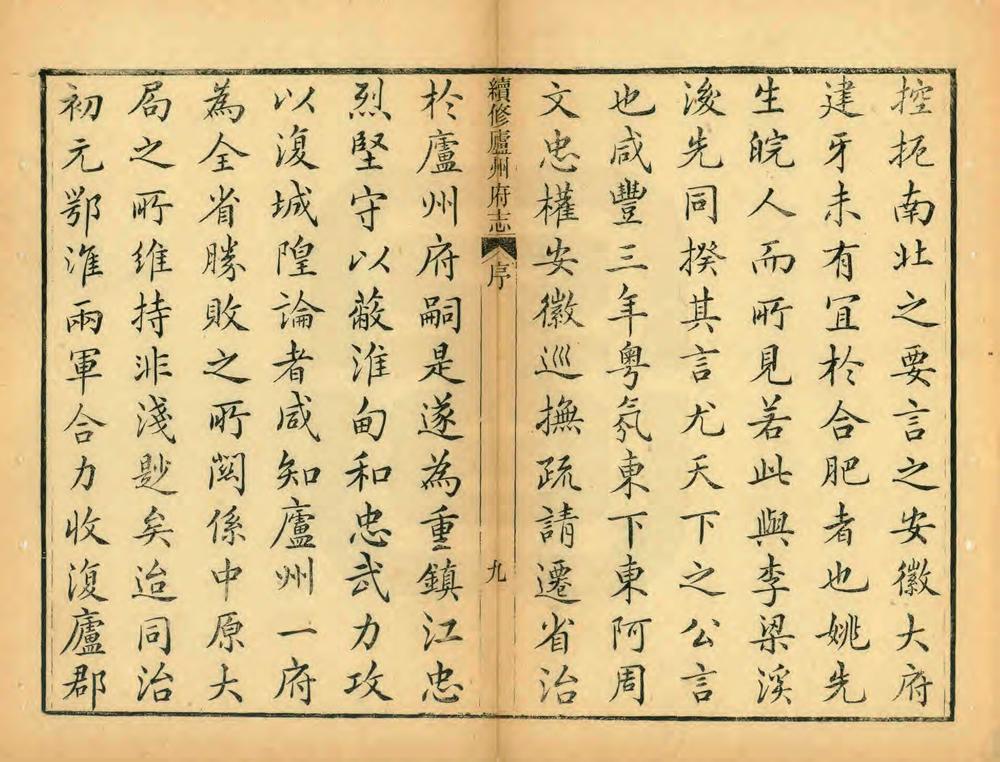 控扼南北之要言之安徽大府
建牙未有宜於合肥者也姚先
生皖人而所見若此與李梁溪
後先同揆其言尤天下之公言
也咸豐三年粵氛東下東阿周
文忠權安徽巡撫疏請遷省治
續修廬州府志 序 九
於廬州府嗣是遂為重鎮江忠
烈堅守以蔽淮甸和忠武力攻
以復城隍論者咸知廬州一府
為全省勝敗之所關係中原大
局之所維持非淺尠矣迨同治
初元鄂淮兩軍合力收復廬郡